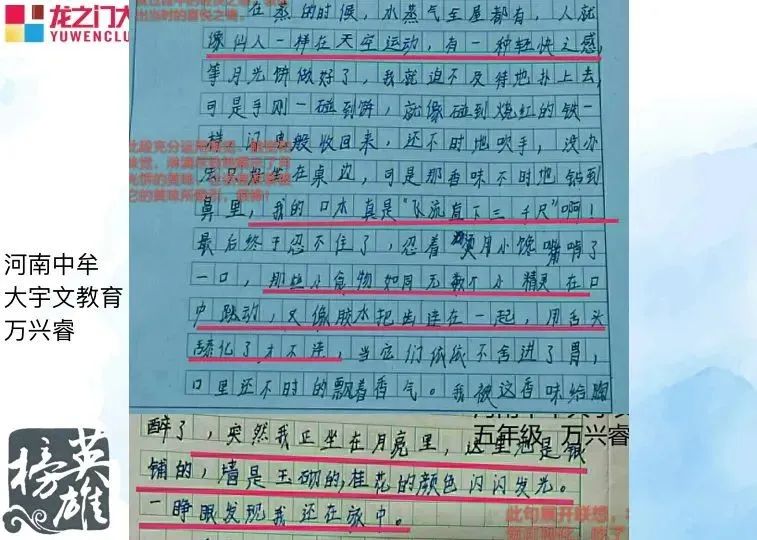 龙之门大
YUWENCLU
出当时的喜悦之情。
在蒸的时候，水蒸气至屋都有，人就
像仙人一样在天空运动，有一种轻快之感，
等月光饼做好了，我就迫不及待地扑上去，
可是手刚一碰到饼，就像碰到烧红的铁一
样，闪电般收回来，还不时地吹手，没办
在桌边，可是那香味不时地钻到
鼻里，我的口水真是“飞流直下三千尺”啊！
最后终于忍不住了，忍着烫用小馋嘴啃了
一口，那些小食物如同无数个小精灵在口
中跳动，又像胶水把齿连在一起，用舌头
舔化了才不连，当它们依依不舍进了胃，
口里还不时的飘着香气。我被这香味给陶
醉了，突然我正坐在月亮里，这里地是银
铺的，墙是玉砌的，桂花的颜色闪闪发光。
一睁眼发现我还在家中。
河南中牟
大宇文教育
万兴睿
五年级 万兴睿
此句展开联想，
英雄榜